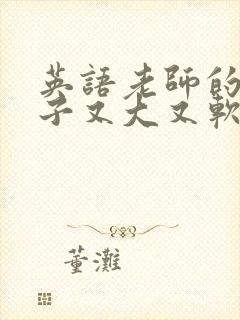 英語老師的
子又大又軟
董灘